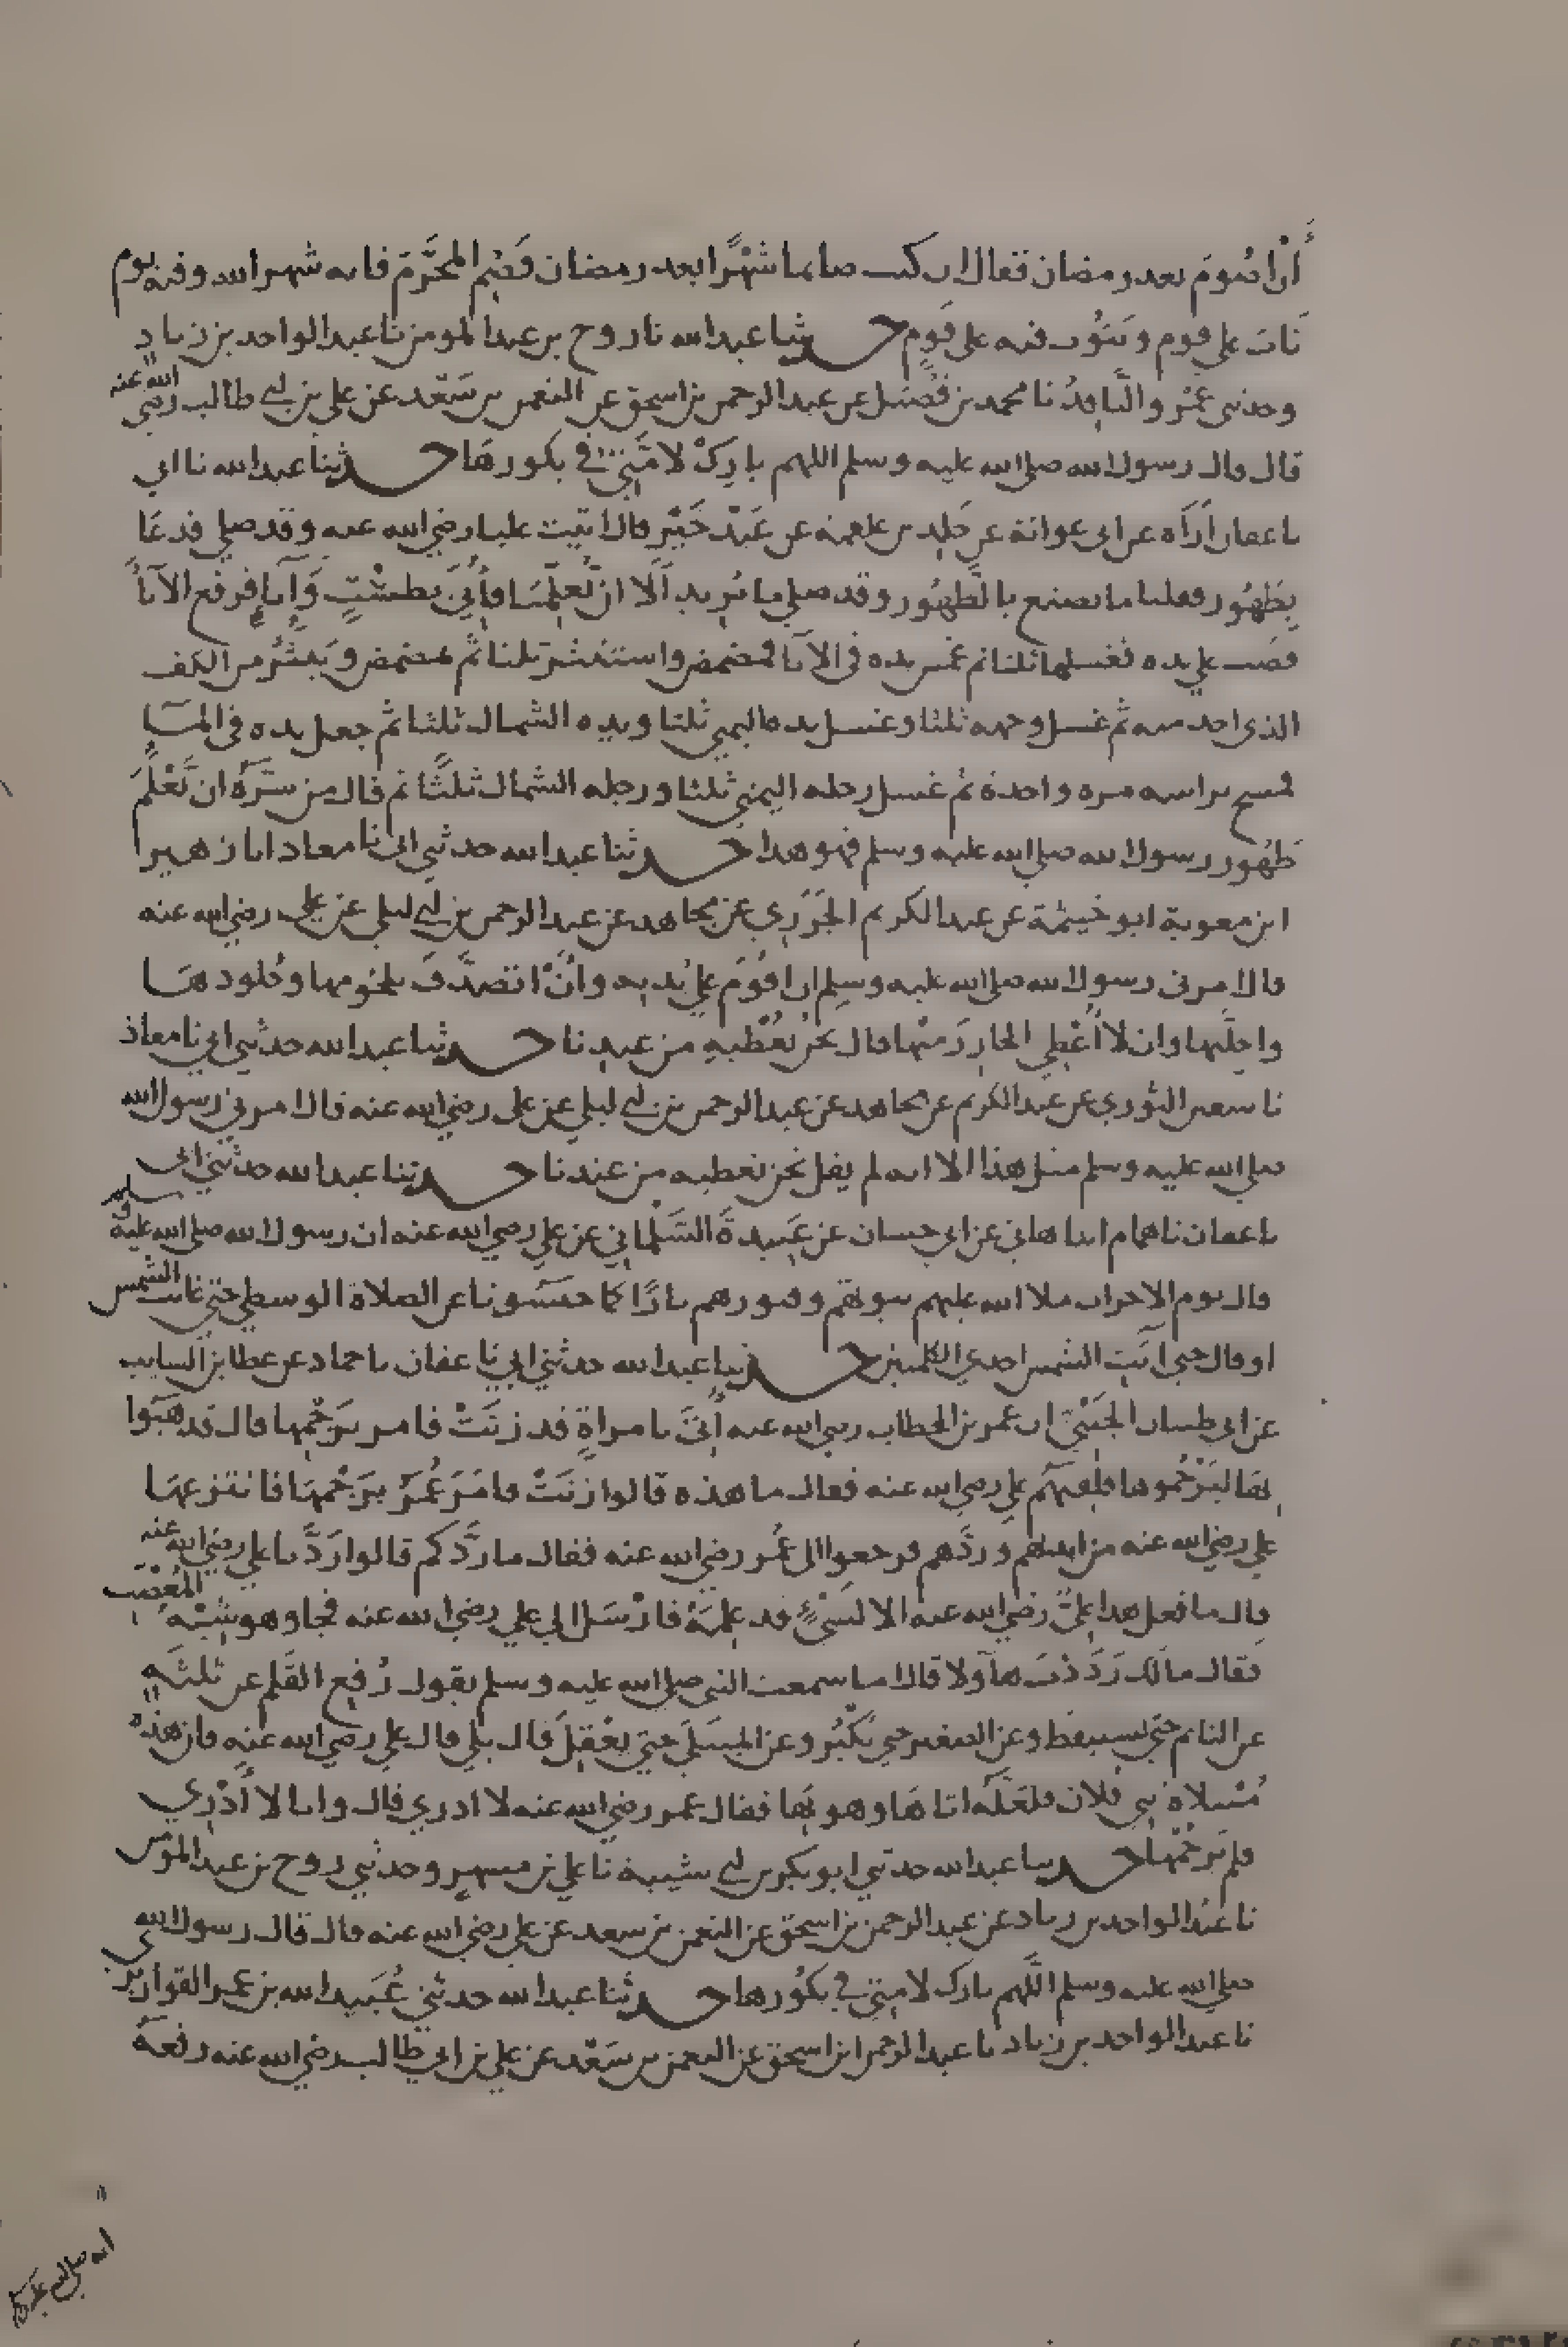 أن اصوم بعد رمضان فقال ان كنت صايما شهرا بعد رمضان فصم المحرم فانه شهر الله وفيه يوم
تاب على قوم ويتوب فيه على قوم حدثنا عبد الله نا روح بن عبد المومن نا عبد الواحد بن زياد
وحدثني عمرو الناقد نا محمد بن فضيل عن عبد الرحمن بن اسحق عن النعمن بن سعد عن علي بن ابي طالب رضي الله عنه
قال قال رسول الله صلى الله عليه وسلم اللهم بارك لامتي في بكورها حدثنا عبد الله نا ابي
نا عفان أراه عن ابي عوانة عن خلد بن علقمه عن عبد خير قال اتيت عليا رضي الله عنه وقد صلى فدعا
بطهور فقلنا ما يصنع بالطهور وقد صلى ما يريد ألا ان تعلمنا فأتي بطشت وإناء فرفع الانآ
فصب على يده فغسلها ثلثا ثم غمس يده في الانآ فمضمض واستنثر ثلثا ثم تمضمض وينثر من الكف
الذي اخذ منه ثم غسل وجهه ثلثا وغسل يده اليمنى ثلثا ويده الشمال ثلثا ثم جعل يده في المآ
فمسح براسه مره واحدة ثم غسل رجله اليمنى ثلثا ورجله الشمال ثلثا ثم قال من سره ان تعلم
طهور رسول الله صلى الله عليه وسلم فهو هدا حدثنا عبد الله حدثني ابي نا معاد انا زهير
ابن معوية ابو خيثمة عن عبد الكريم الجزري عن مجاهد عن عبد الرحمن بن ابي ليلى عن علي رضي الله عنه
قال امرني رسول الله صلى الله عليه وسلم ان اقوم على بدنه وأن اتصدق بلحومها وجلودها
واجلتها وان لا أعطي الجازر منها قال نحن نعطيه من عندنا حدثنا عبد الله حدثني ابي نا معاذ
نا سفين الثوري عن عبد الكريم عن مجاهد عن عبد الرحمن بن ابي ليلى عن علي رضي الله عنه قال امرني رسول الله
صلى الله عليه وسلم مثل هذا الا انه لم يقل نحن نعطيه من عندنا حدثنا عبد الله حدثني ابي
نا عفان نا همام انبا قتادة عن ابي حسان عن عبيدة السلماني عن علي رضي الله عنه ان رسول الله صلى الله عليه وسلم
قال يوم الاحزاب ملا الله عليهم بيوتهم وقبورهم نارا كما حبسونا عن الصلاة الوسطى حتى غابت الشمس
او قال حتى آبت الشمس احدى الكلمتين حدثنا عبد الله حدثني ابي نا عفان نا حماد عن عطا بن السايب
عن ابي ظبيان الجنبي ان عمر بن الخطاب رضي الله عنه أتي بامراة قد زنت فامر برجمها قال فذهبوا
بها ليرجموها فلقيهم علي رضي الله عنه فقال ما هذه قالوا زنت فامر عمر برجمها فانتزعها
علي رضي الله عنه من ايديهم وردهم فرجعوا الى عمر رضي الله عنه فقال ما ردكم قالوا ردنا علي رضي الله عنه
قال ما فعل هدا علي رضي الله عنه الا لشيء قد علمه فارسل الى علي رضي الله عنه فجا وهو شبه المغضب
فقال مالك رددت هآولا قال اما سمعت النبي صلى الله عليه وسلم يقول رفع القلم عن ثلثة
عن النائم حتى يستيقظ وعن الصغير حتى يكبر وعن المبتلى حتى يعقل قال بلى قال علي رضي الله عنه فان هذه
مبتلاة بني فلان فلعله اتاها وهو بها فقال عمر رضي الله عنه لا ادري قال وانا لا أدري
فلم يرجمها حدثنا عبد الله حدثني ابو بكر بن ابي شيبة نا علي بن مسهر وحدثني روح بن عبد المومن
نا عبد الواحد بن زياد عن عبد الرحمن بن اسحق عن النعمن بن سعد عن علي رضي الله عنه قال قال رسول الله
صلى الله عليه وسلم اللهم بارك لامتي في بكورها حدثنا عبد الله حدثني عبيد الله بن عمر القواريري
نا عبد الواحد بن زياد نا عبد الرحمن ابن اسحق عن النعمن بن سعد عن علي بن ابي طالب رضي الله عنه رفعه